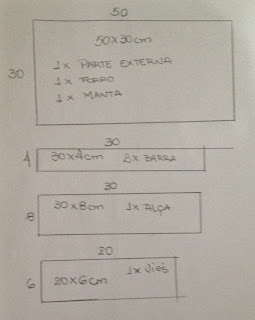 50
50x30cm
30
1x PARTE EXTERNA
1x FORRO
1x MANTA
30
4
30x4cm 2x BARRA
30
8
30x8cm 1x ALÇA
20
1x Viés
6
20x6cm